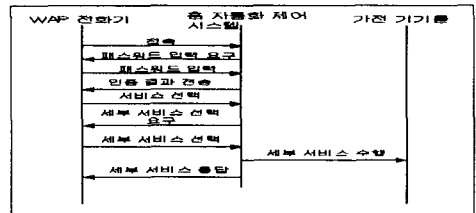 WAP 전화기
홈 자동화 제어
시스템
가전 기기들
접속
패스워드 입력 요구
패스워드 입력
인증 결과 전송
서비스 선택
세부 서비스 선택
요구
세부 서비스 선택
세부 서비스 수행
세부 서비스 응답